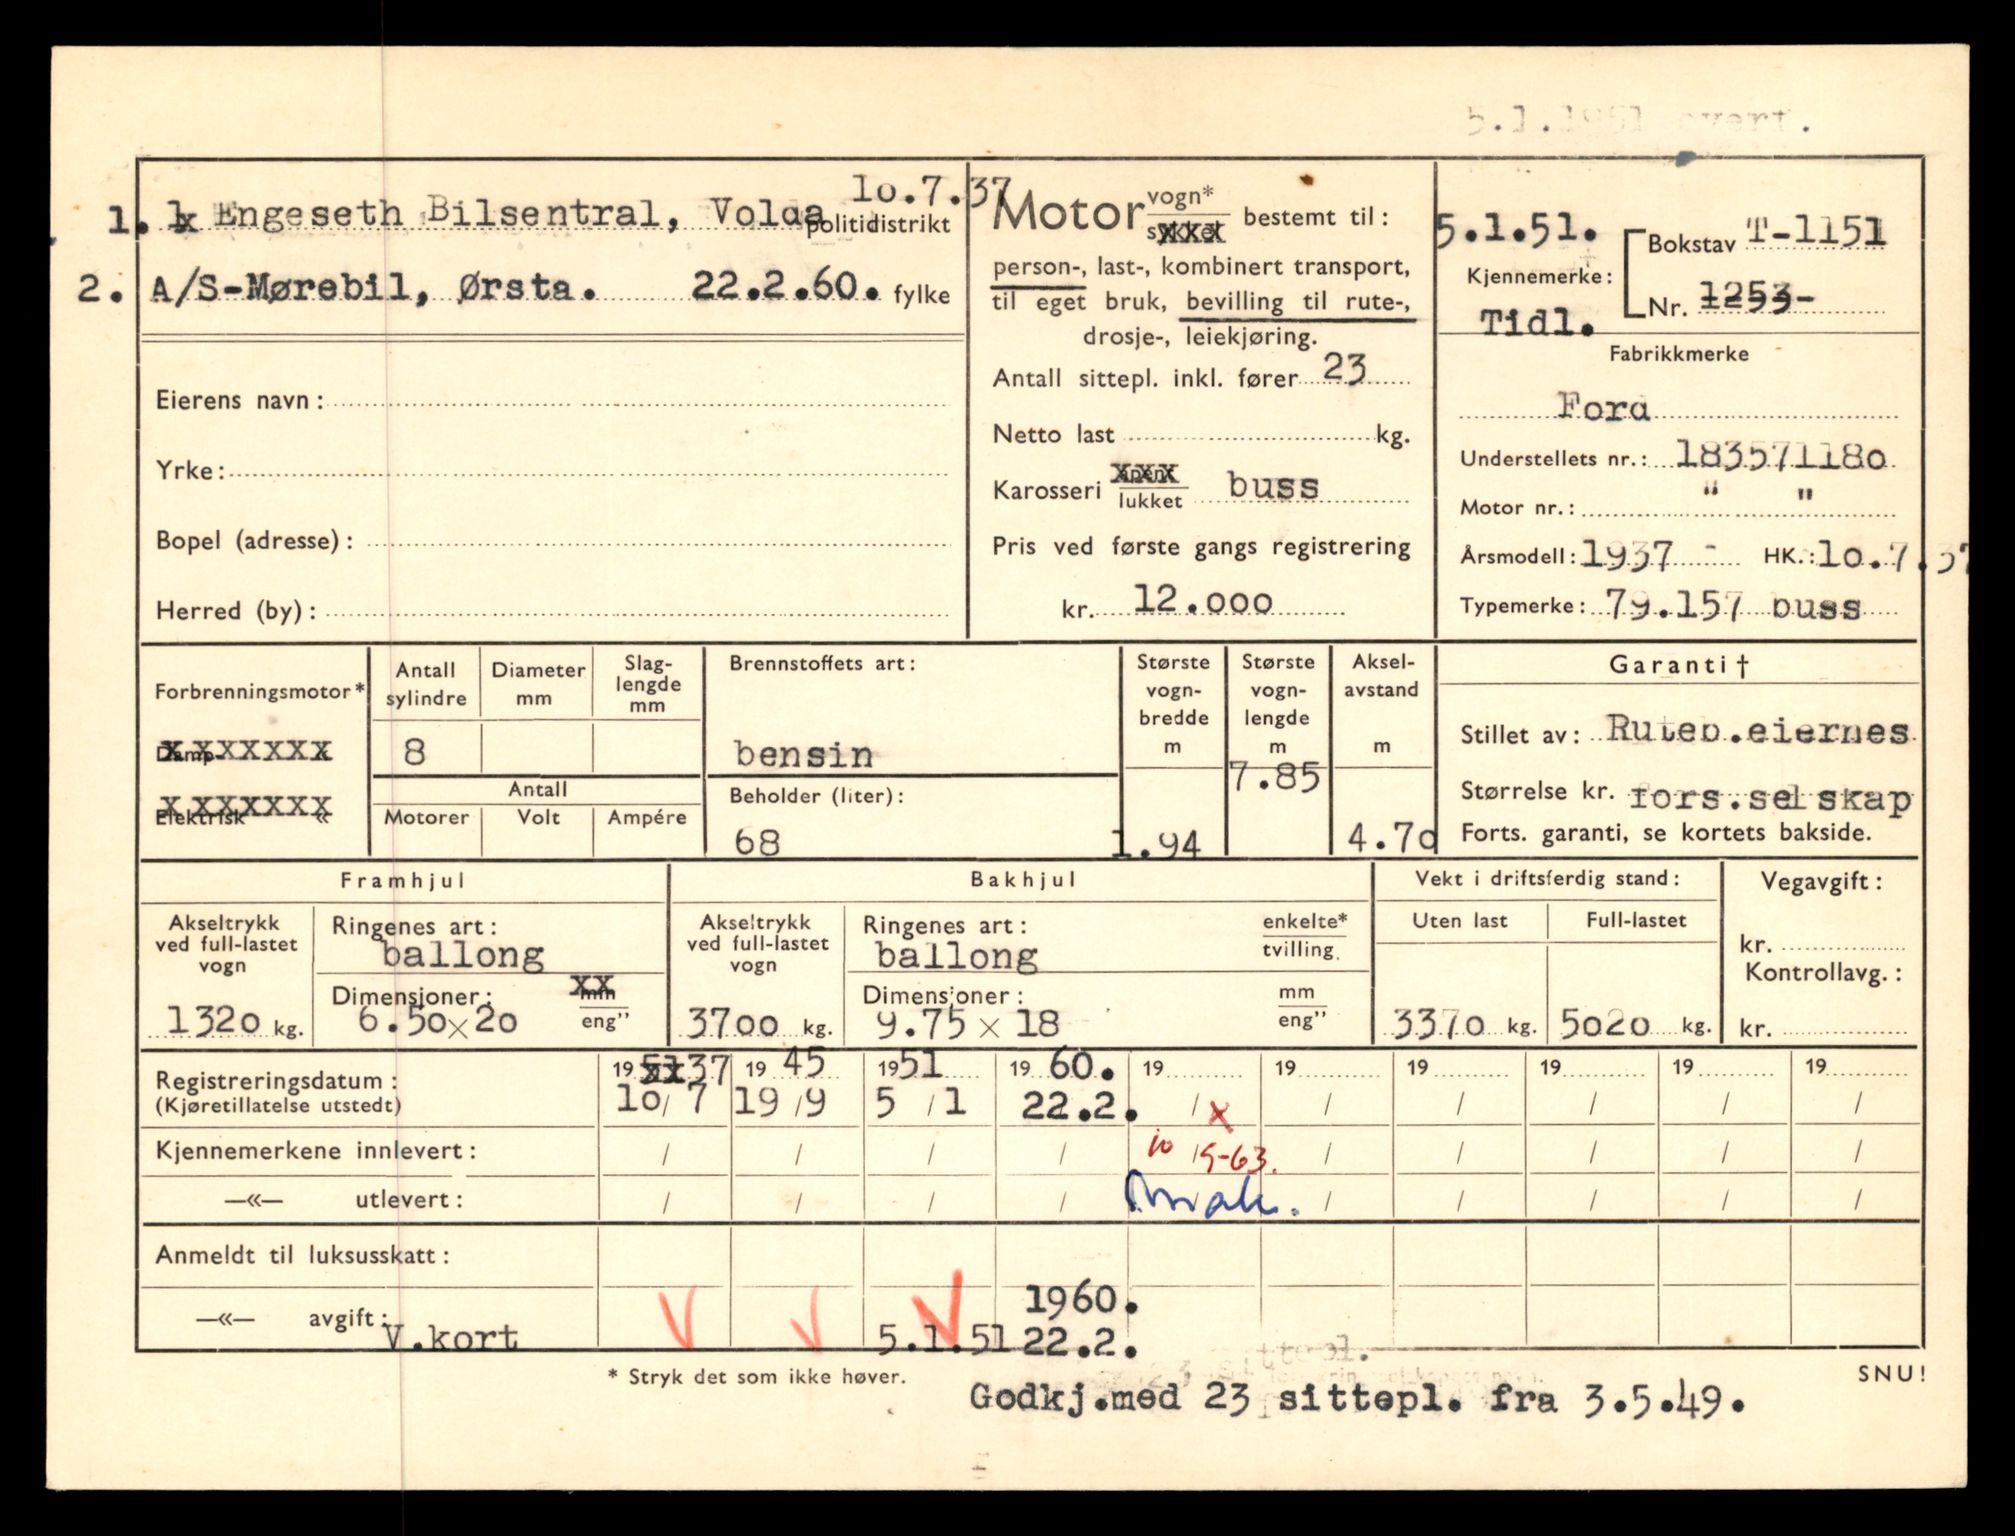 5.1.1951 overt.
1. Engeseth Bilsentral, Volda 10.7.37
politidistrikt
2. A/S-Mørebil, Ørsta. 22.2.60. fylke
Eierens navn:
Yrke:
Bopel (adresse):
Herred (by):
Motor vogn* bestemt til:
sykkel
person-, last-, kombinert transport,
til eget bruk, bevilling til rute-,
drosje-, leiekjøring.
Antall sittepl. inkl. fører 23
Netto last kg.
Karosseri åpent
lukket buss
Pris ved første gangs registrering
kr. 12.000
5.1.51. Bokstav T-1151
Kjennemerke:
Tidl. Nr. 1253-
Fabrikkmerke
Ford
Understellets nr.: 183571180
Motor nr.: " "
Årsmodell: 1937 - HK.: 10.7.37
Typemerke: 79.157 buss
Forbrenningsmotor*
Damp- xxxxxxx «
Elektrisk xxxxxxx «
Antall sylindre
8
Diameter mm
Slag-lengde mm
Antall
Motorer Volt Ampére
Brennstoffets art:
bensin
Beholder (liter):
68
Største vogn-bredde m
1.94
Største vogn-lengde m
7.85
Aksel-avstand m
4.70
Garanti †
Stillet av: Ruteb.eiernes
Størrelse kr. fors.selskap
Forts. garanti, se kortets bakside.
Framhjul
Akseltrykk ved full-lastet vogn
1320 kg.
Ringenes art:
ballong
Dimensjoner: mm
6.50x20 eng"
Bakhjul
Akseltrykk ved full-lastet vogn
3700 kg.
Ringenes art: enkelte*
ballong tvilling
Dimensjoner: mm
9.75 x 18 eng"
Vekt i driftsferdig stand:
Uten last Full-lastet
3370 kg. 5020 kg.
Vegavgift:
kr.
Kontrollavg.:
kr.
Registreringsdatum: 19 51 37 19 45 1951 19 60. 19 19 19 19 19 19
(Kjøretillatelse utstedt) 10/ 7 19 /9 5 / 1 22.2. / x / / / / /
Kjennemerkene innlevert: / / / / 10 / 5-63. / / / / /
—«— utlevert: / / / / / / / / /
Anmeldt til luksusskatt:
—«— avgift: 1960.
V.kort V V 5.1.51 V 22.2.
* Stryk det som ikke høver.
23 sittepl.
SNU!
Godkj.med 23 sittepl. fra 3.5.49.